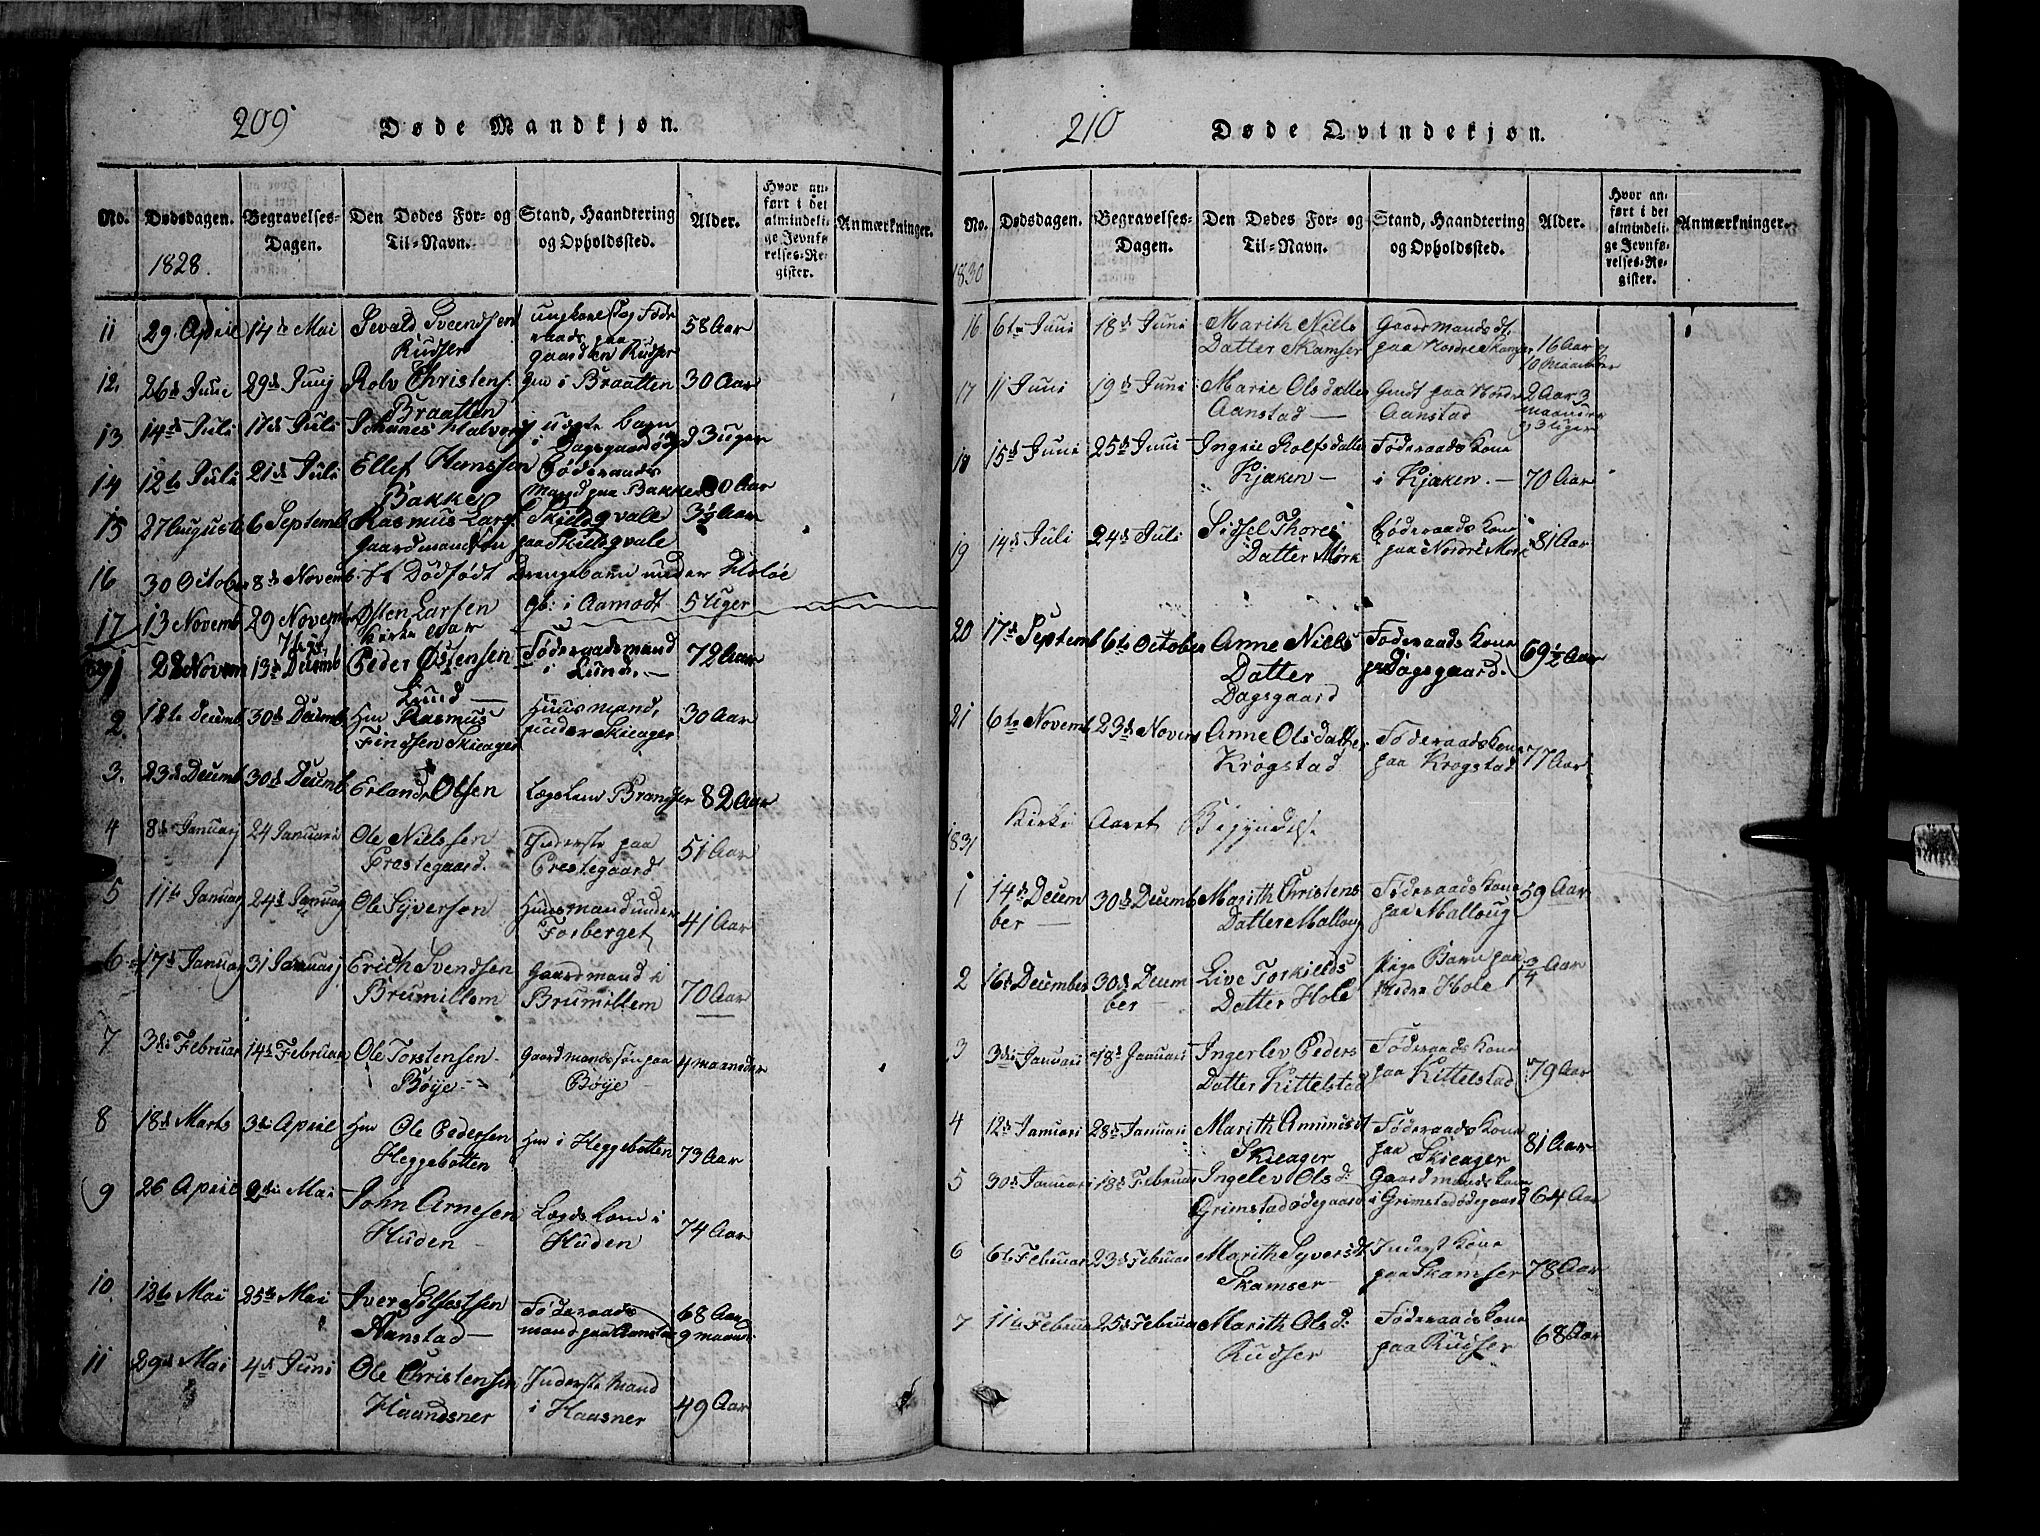 209
Døde Mandkjøn.
No.
Dødsdagen.
Begravelses-
Dagen.
Den Dødes For- og
Til-Navn.
Stand, Haandtering
og Opholdssted.
Alder.
Hvor an-
ført i det
almindeli-
ge Jevnfø-
relses-Re-
gister.
Anmærkninger.
1828.
11 29 April 14de Mai Sevald Sveendsen
Rudser
gaarden Rudser
58 Aar
12. 26de Juni 29de Junj Rolv Christens.
Braatten
Hm i Braatten 30 Aar
13 14de Juli 17de Juli Johanes Halvors
uægte barn
i Dagsgaardødg
3 uger
14 12te Juli 21de Juli Ellef Hansen
Bakke
Föderaads
Mand paa Bakke
80 Aar
15 27 Augusti 6 Septemb Rasmus Lars.
Gaardmandsøn
Skielqvale
paa Skielqvale
3½ Aar
16 30 October 8de Novemb. Et Dödfödt Drengebarn under Ulsloe
17 13 Novemb 29 Novemb Østen Larsen
gb: i Aamodt 5 Uger
Kirke Aar
1 22 Novem 13de Decemb Peder Østensen
Lund
Föderaadsmand
i Lund.
72 Aar
2. 18te Decemb 30de Decemb Hm Rasmus
Findsen Skieager
Huusmand,
under Skieager
30 Aar
3. 23de Decemb 30de Decemb Erland Olsen Lægslem Brandser 82 Aar
4 8de Januarj 24 Januari Ole Nielssen
Prestegaard.
Inderste paa
Prestegaard
51 Aar
5 11te Januarj 24de Januarj Ole Syversen
Huusmand under
Forberget
41 Aar
6 17de Januarj 31 Januarj Erich Svendsen
Brumillem
Gaardmand i
Brumillem
70 Aar
7 3die Februar 14de Februar Ole Torstensen
Böye
Gaardmandssøn paa
Böye
4 maaneder
8 18de Marts 3die April Hm Ole Pedersen
Heggebotten
Hm i Heggebotten 73 Aar
9 26 April 9de Mai John Arnesen
Huden
Lægds Lem i
Huden
74 Aar
10. 12te Mai 25de Mai Iver Solfestsen
Aanstad
Föderaads
mand paa Aanstad
68 Aar
9 maaned
11 29de Mai 4de Juni Ole Christensen
Haandsner
Inderste Mand
i Haasner
49 Aar
210
Døde Qvindekjøn.
No.
Dødsdagen.
Begravelses-
Dagen.
Den Dødes For- og
Til-Navn.
Stand, Haandtering
og Opholdssted.
Alder.
Hvor an-
ført i det
almindeli-
ge Jevnfø-
relses-Re-
gister.
Anmærkninger.
1830
16 6te Juni 18de Juni Marith Niels
Datter Skamser
Gaardmandsdt.
paa Nordre Skamser
16 Aar og
10 Maaneder
17 11 Juni 19de Juni Marie Olsdatter
Aanstad
paa Nordre
Aanstad
2 Aar 3
maaneder
og 3 Uger
18 15de Juni 25de Juni Ingrie Rolfsdatter
Kjøken
Föderaads Kone
i Kjøken.
70 Aar
19 14de Juli 24de Juli Sidsel Thores
Datter Mørk
Föderaads Kone
paa Nordre Mørk
81 Aar
20 17de Septemb 6te October Anne Niels
Datter
Dagsgaard
Föderaads Kone
paa Dagsgaard.
69½ Aar
21 6te Novemb 23de Novem Anne Olsdatter
Krogstad
Föderaads Kone
paa Krogstad
77 Aar
Kirke Aaret Begyndelse
1831
1 14de Decem
ber
30de Decemb Marith Christens
Datter Malloug
Föderaads Kone
paa Malloug
59 Aar
2 16de December 30de Decem
ber
Live Torkields
Datter Hole
Pige Barn paa
Nedre Hole
¾ Aar
3 3die Januari 18de Januari Ingerlev Peders
Datter Kittelstad
Föderaads Kone
paa Kittelstad
79 Aar
4 12de Januari 28de Januari Marith Amundsdt
Skieager
Föderaads Kone
paa Skieager
81 Aar
5 30de Januari 18de Februar Ingelev Ols d.
Grimstadødegaard
Gaardmands Kone
i Grimstadødegaard
64 Aar
6 6te Februar 23de Februar Marith Syversdt
Skamser
Inderst Kone
paa Skamser
78 Aar
7 11te Februar 25de Februar Marith Ols d.
Rudser
Föderaads Kone
paa Rudser
68 Aar